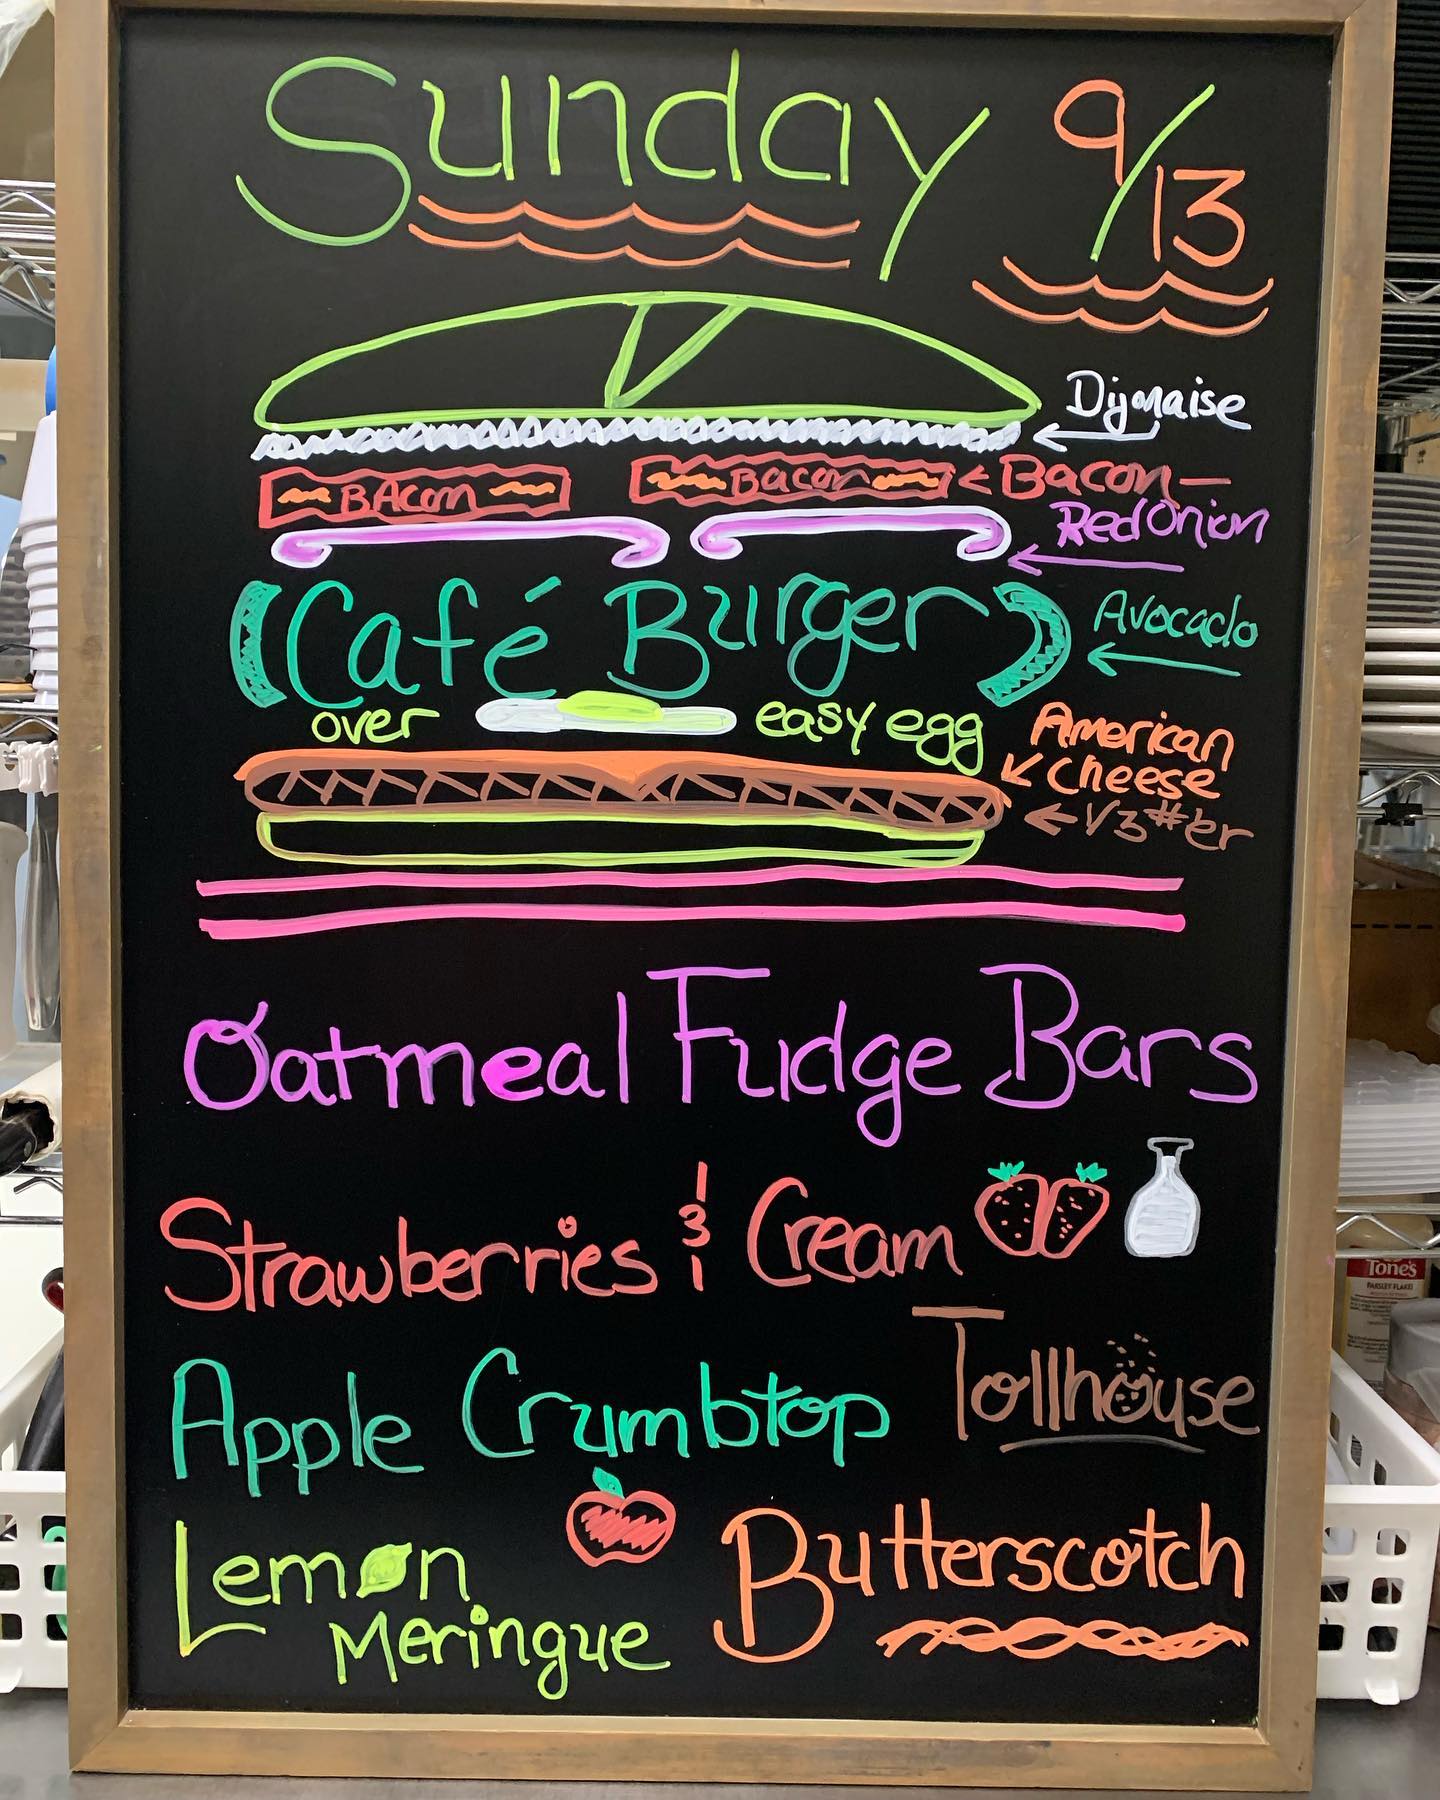 Sunday 9/13
Dijonaise
BAcon Bacon Bacon
Red Onion
Café Burger Avocado
over easy egg
American
cheese
1/3 #'er
Oatmeal Fudge Bars
Strawberries & Cream
Apple Crumbtop
Tollhouse
Lemon
Meringue
Butterscotch
Tone's
PARSLEY FLAKES